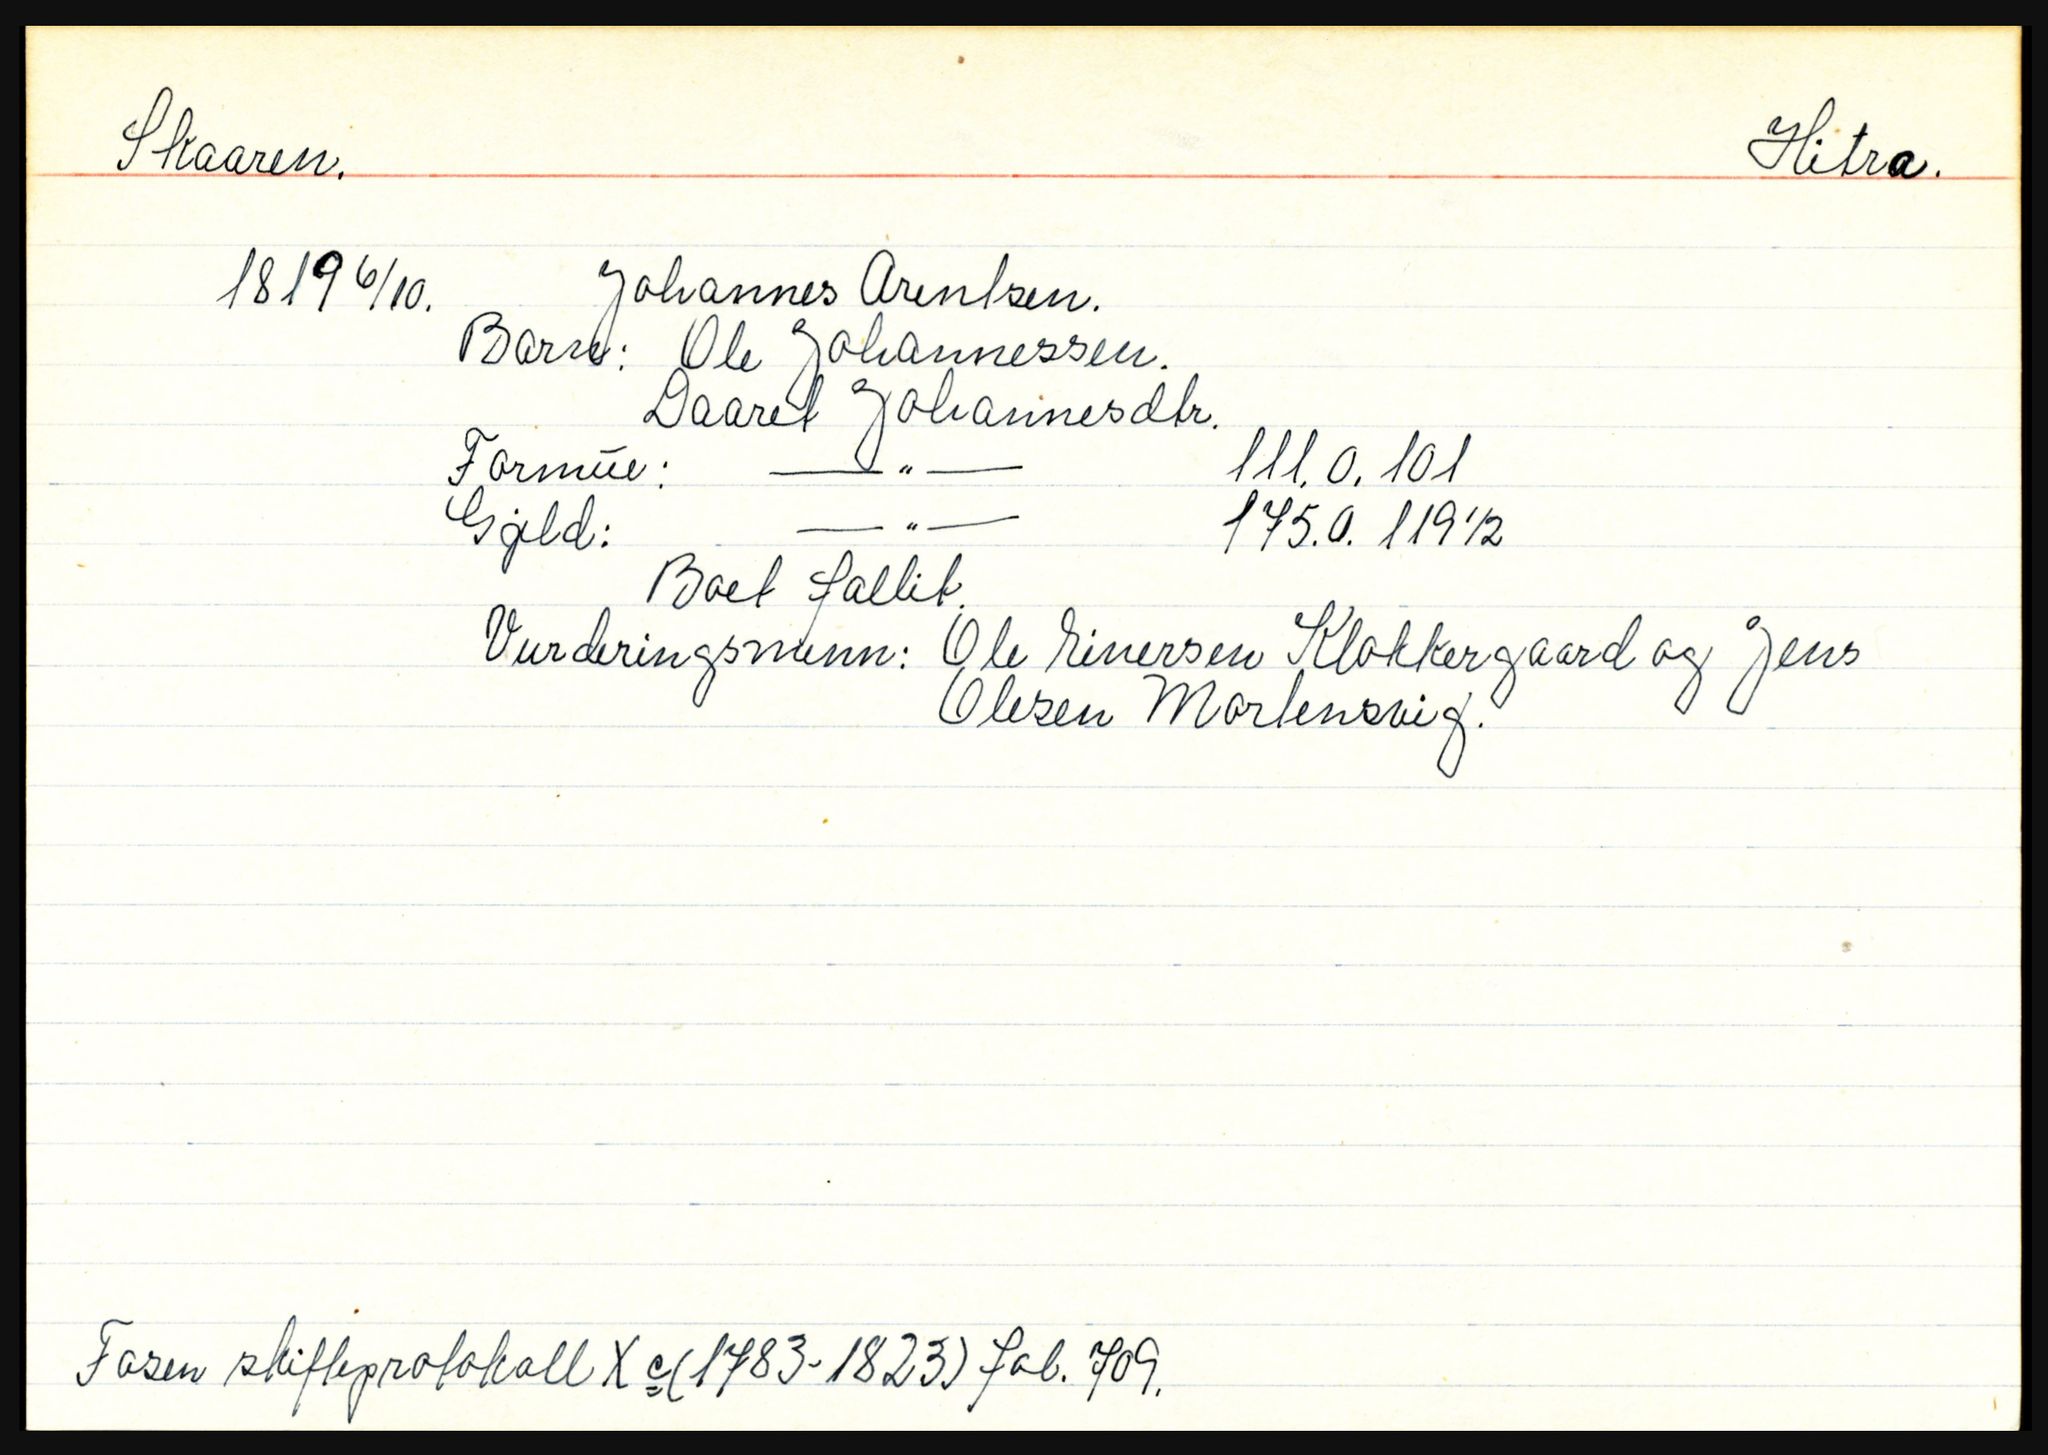 Skaaren. Hitra.
1819 6/10. Johannes Arentsen.
Barn: Ole Johannessen.
Daaret Johannesdtr.
Formue: —"— 111. 0. 101
Gjeld: —"— 175. 0. 119 1/2
Boet fallit.
Vurderingsmenn: Ole Einersen Klokkergaard og Jens
Olesen Mortensvig.
Fosen skifteprotokoll X c (1783-1823) fol. 709.